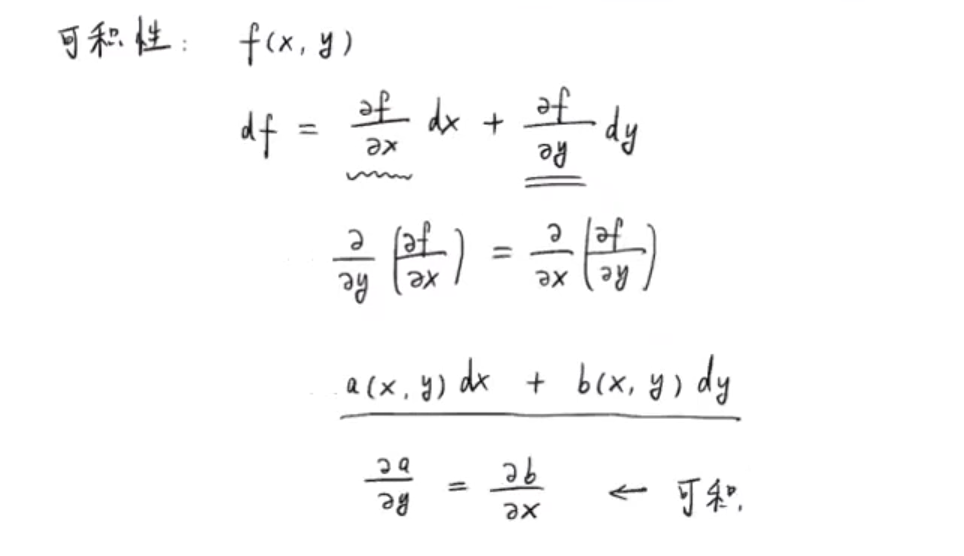 可积性: f(x, y)
df = ∂f/∂x dx + ∂f/∂y dy
∂/∂y (∂f/∂x) = ∂/∂x (∂f/∂y)
a(x, y) dx + b(x, y) dy
∂a/∂y = ∂b/∂x ← 可积.